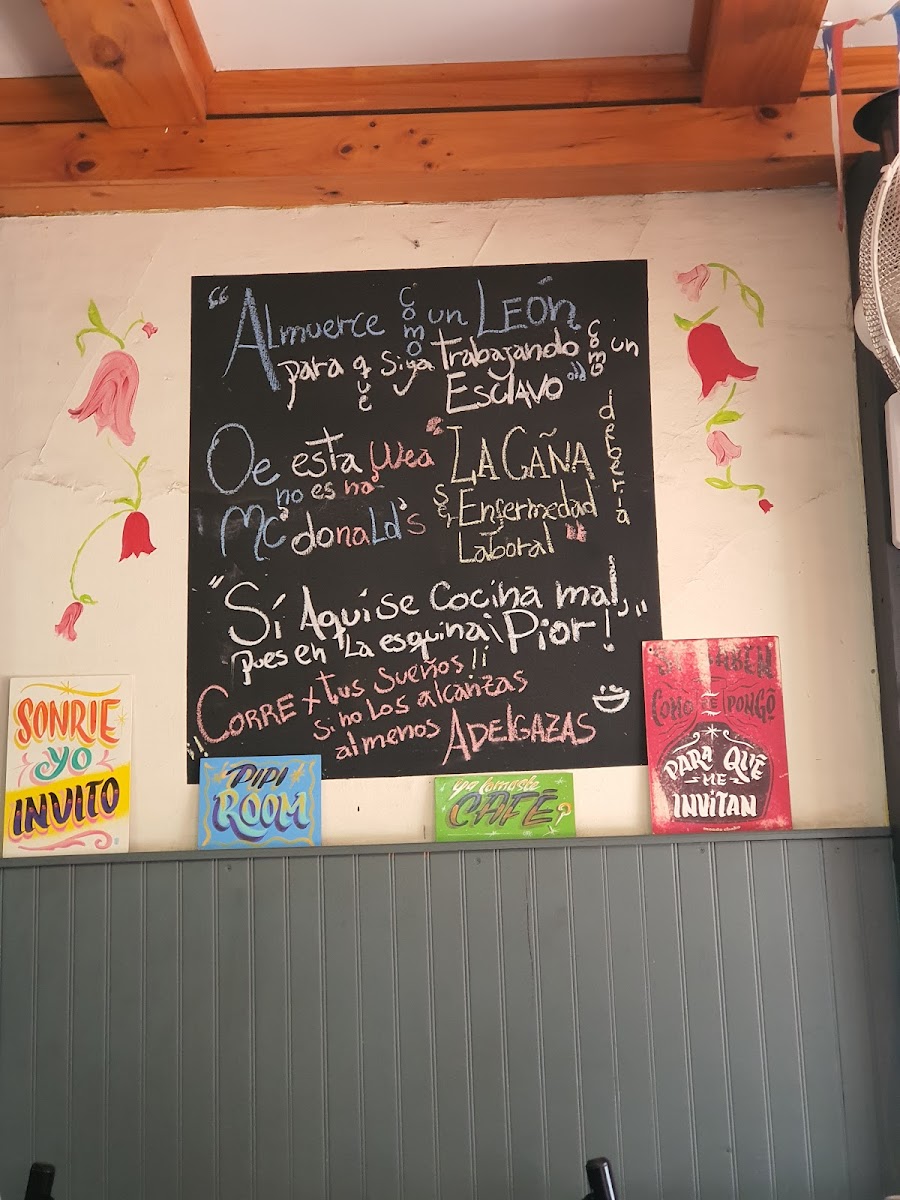 "Almuerce como un León
para que siga trabajando como un
Esclavo"
Oe esta wea
no es na
Mc'donald's
"LA CAÑA
debería
ser Enfermedad
Laboral"
"Sí Aquí se Cocina mal,
pues en la esquina ¡Pior!"
¡¡CORRE x tus sueños!!
si no los alcanzas
almenos ADElGAZAS
SONRIE
YO
INVITO
PIPI
ROOM
ya tomaste
CAFÉ?
COMO ME PONGO
PARA QUÉ
ME
INVITAN